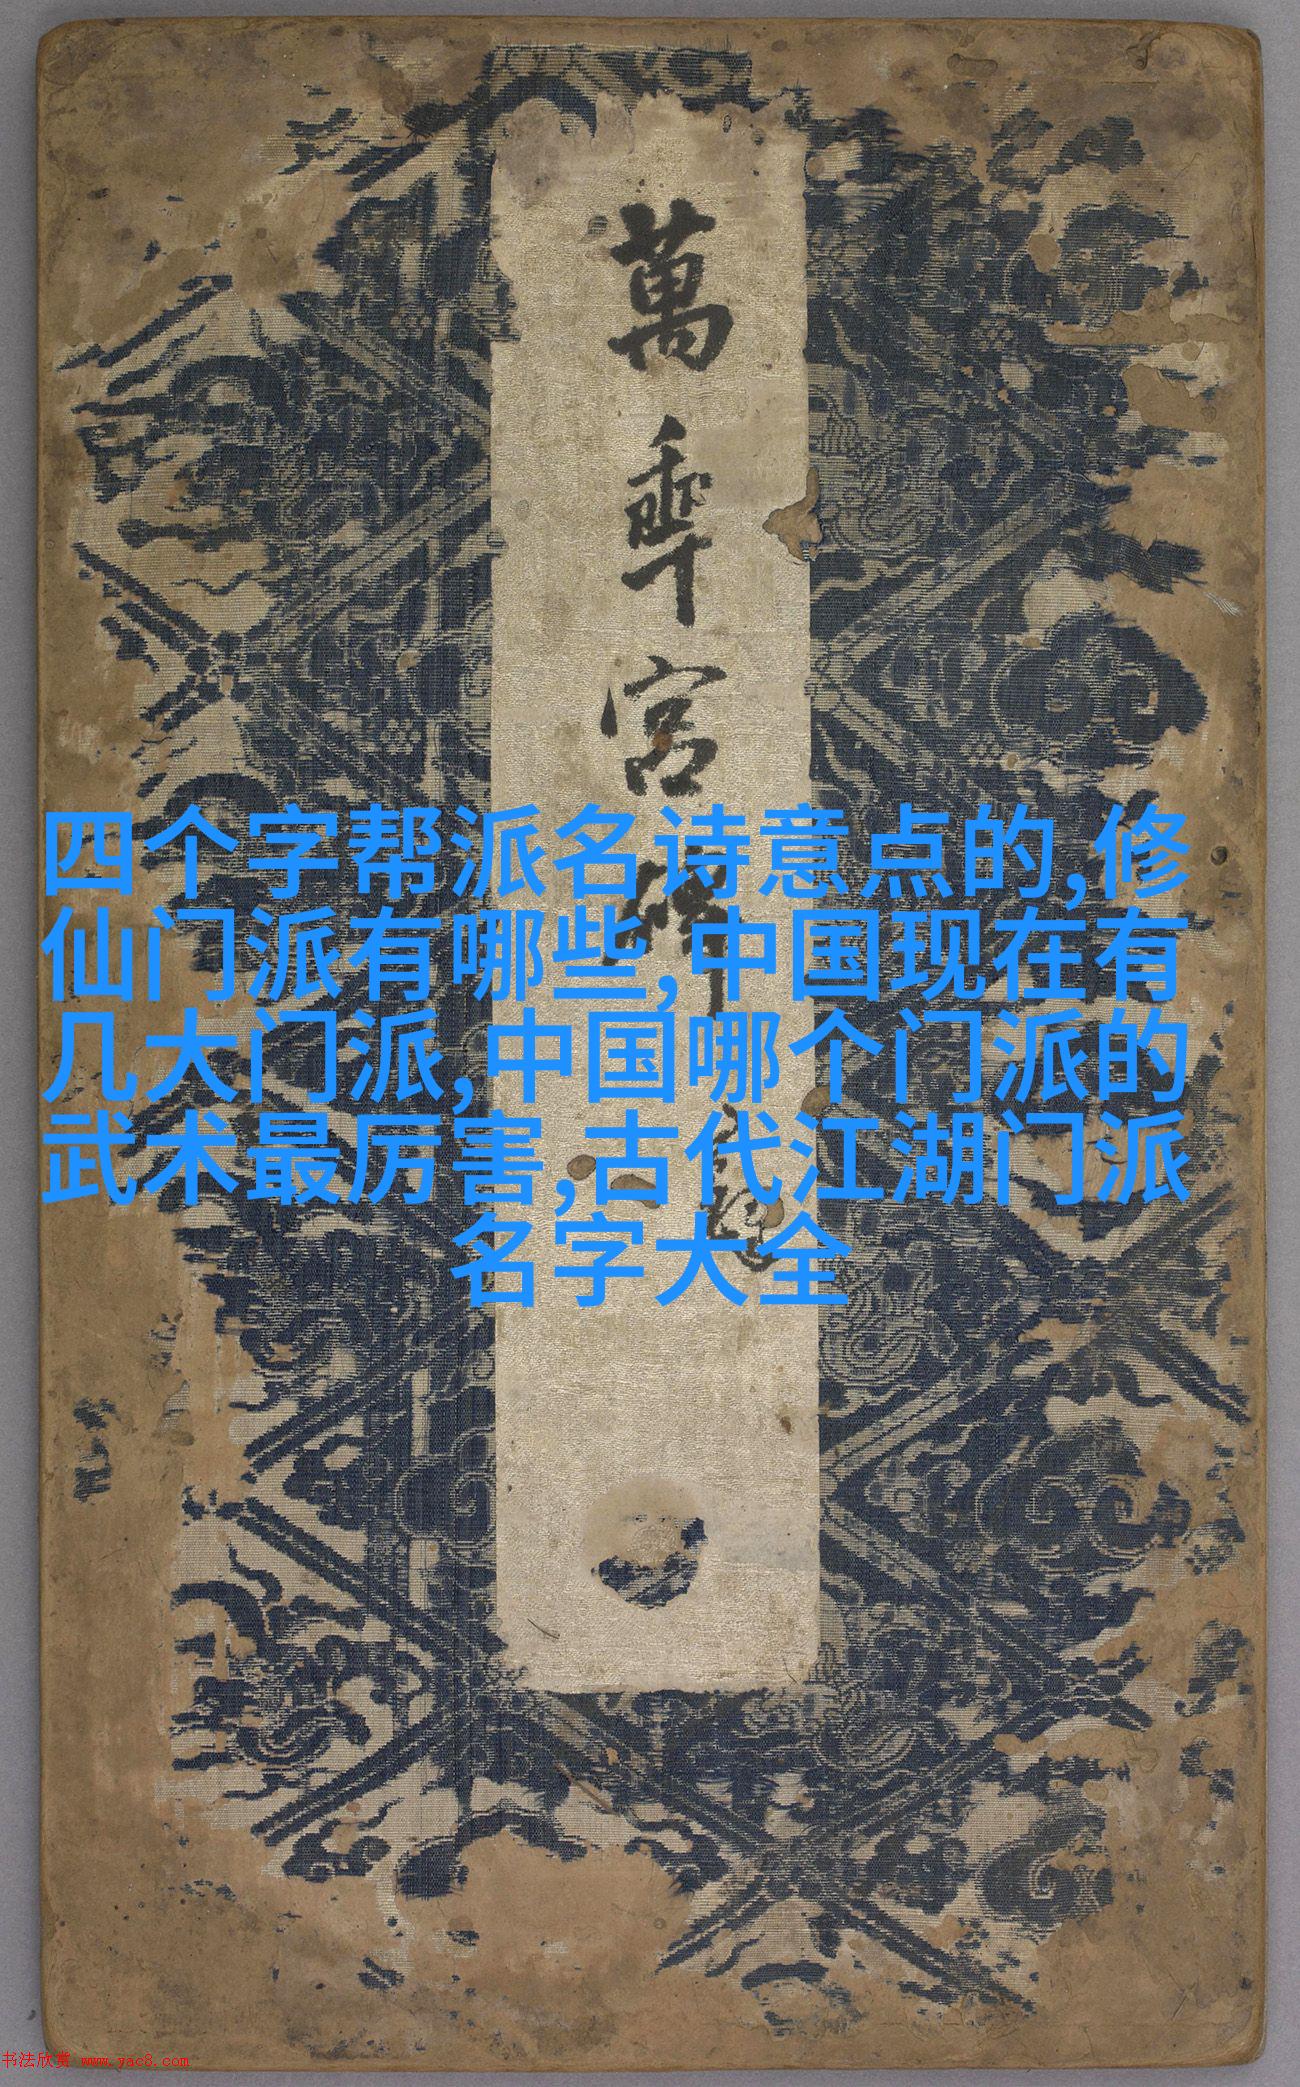 萬年宮碑
四个字帮派名诗意点的,修
仙门派有哪些,中国现在有
几大门派,中国哪个门派的
武术最厉害,古代江湖门派
名字大全
书法欣赏 www.yac8.com